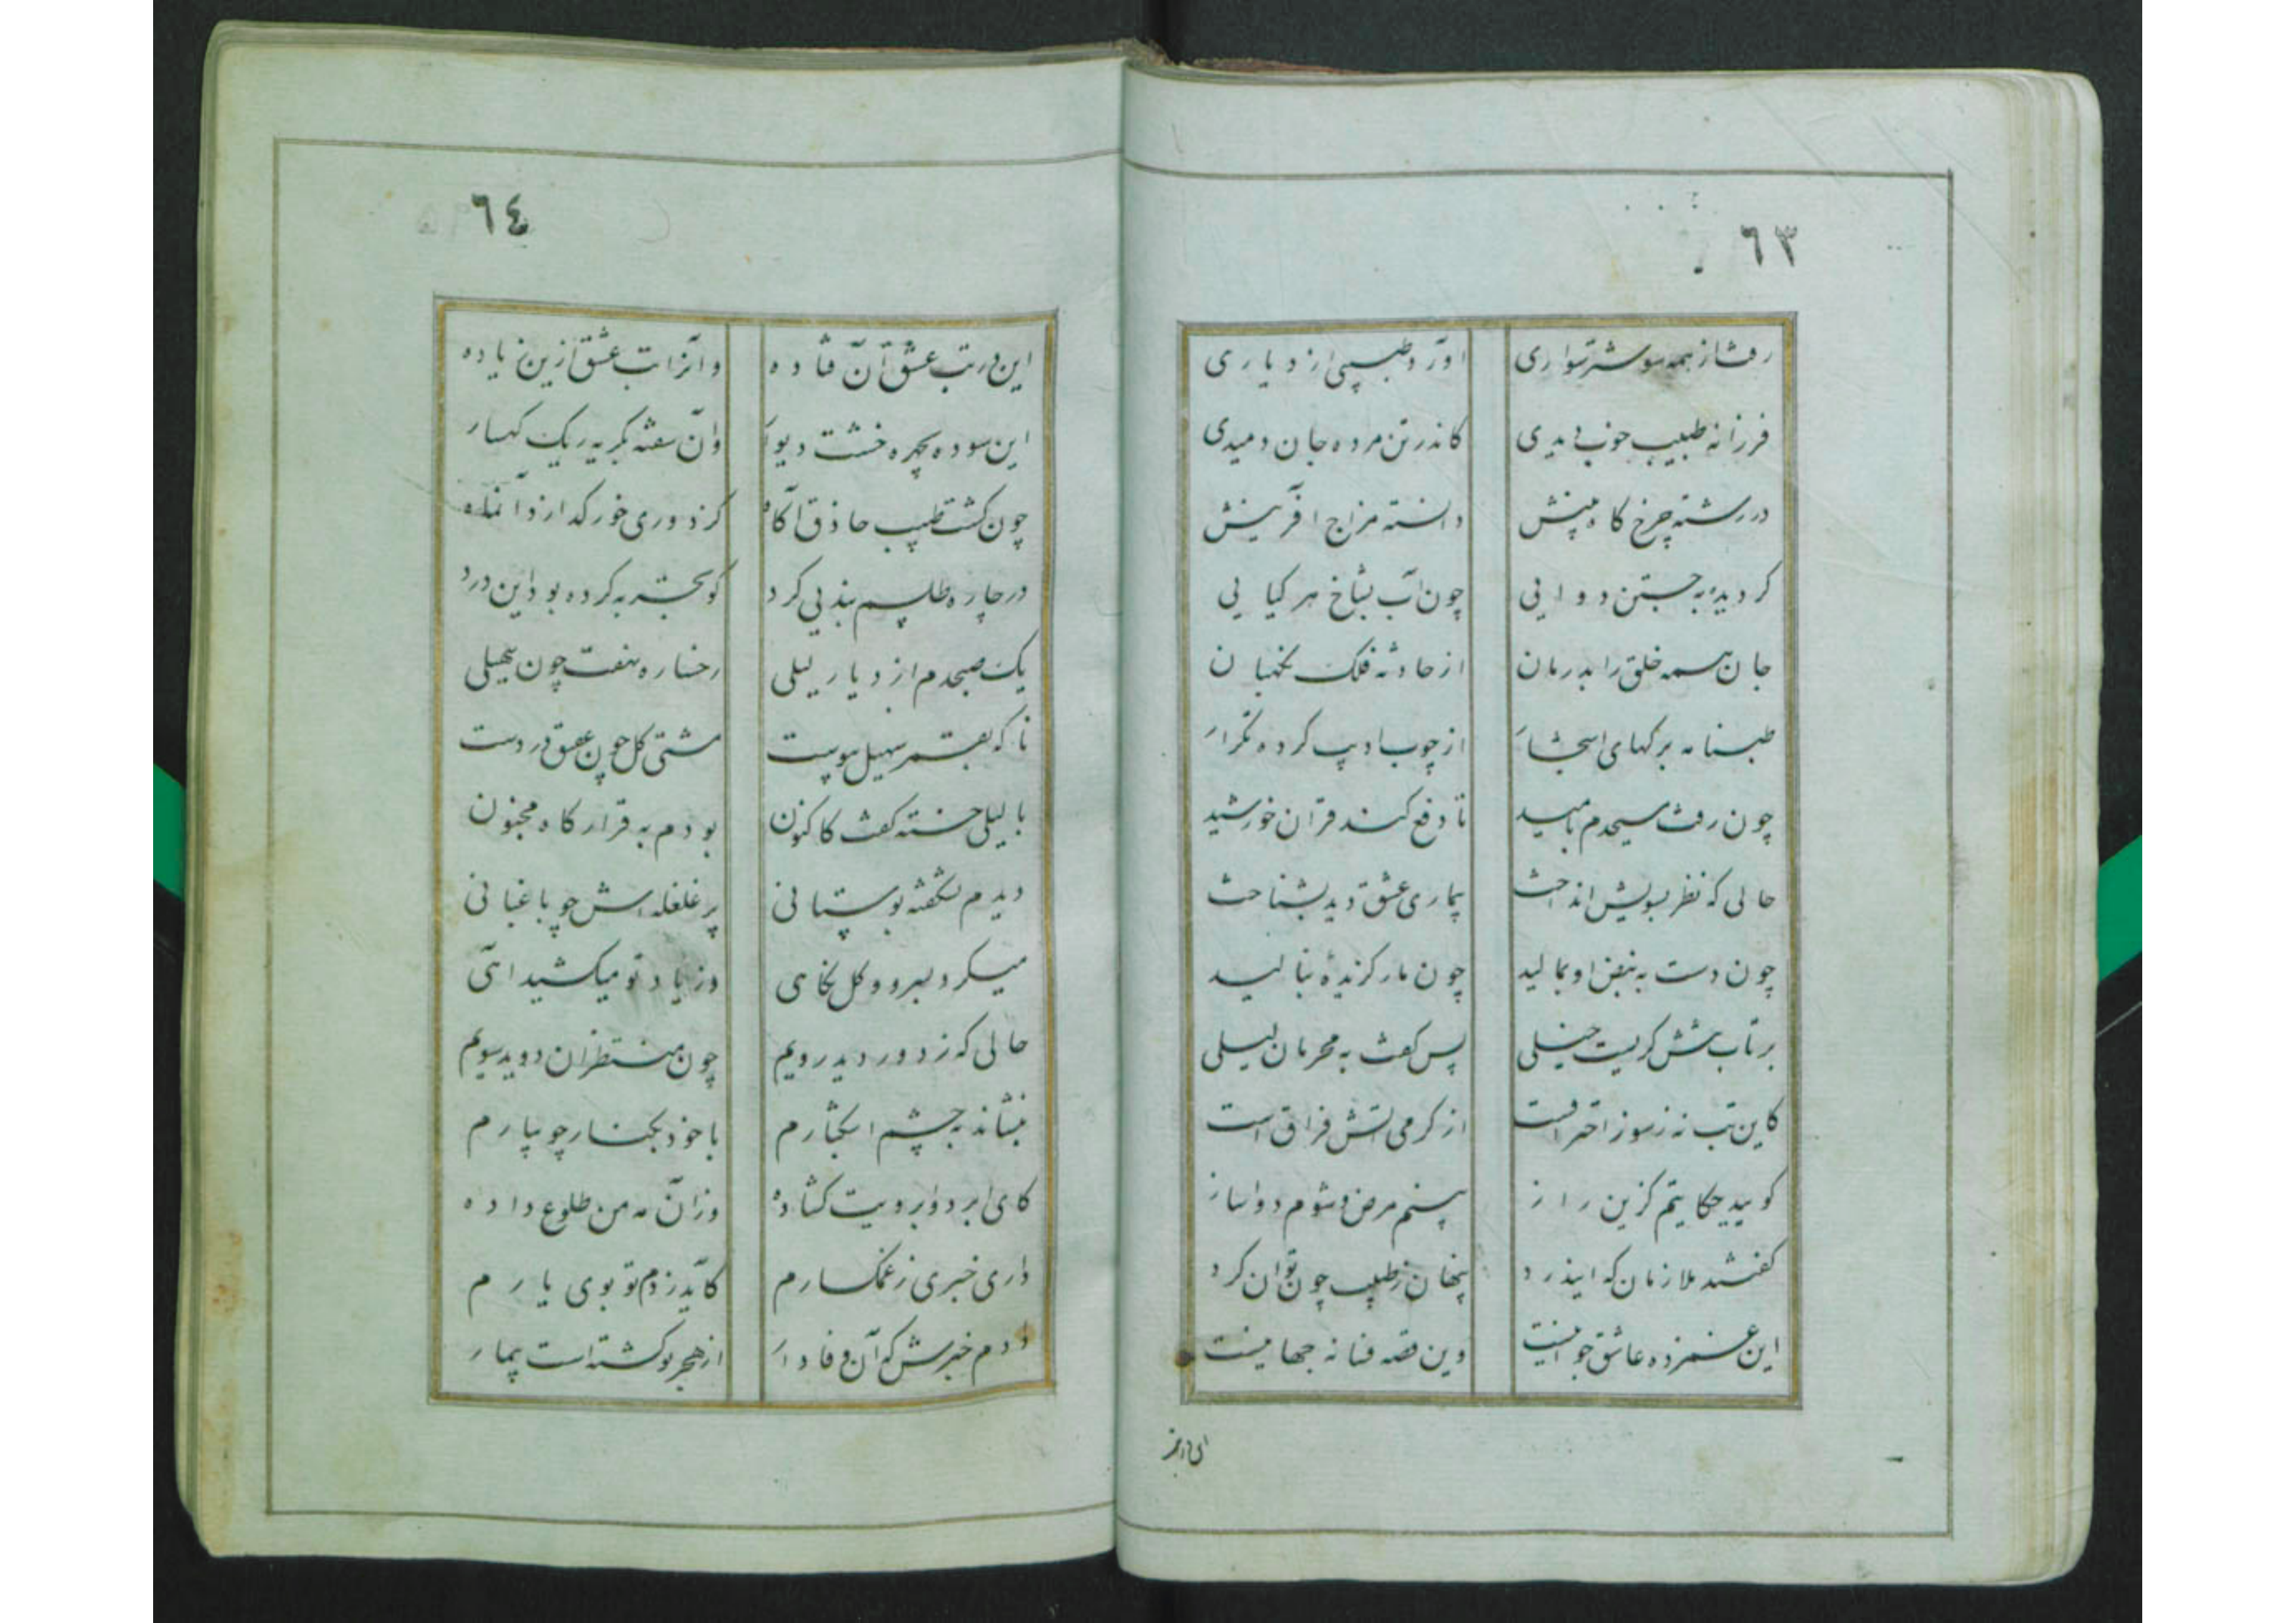 ٦٣
رفت از همه سو شتر سواری اورد طبیبی از دیاری
فرزانه طبیب خوب دیدی کاندر تن مرده جان دمیدی
در رشته چرخ کاه بینش دانسته مزاج افرینش
کردیده به جستن دوایی چون آب بشاخ هر کیایی
جان همه خلق را بدرمان از حادثه فلک نکهبان
طبنامه برکهای اشجار از چوب ادیب کرده تکرار
چون رفت مسیحدم بامید تا دفع کند قران خورشید
حالی که نظر بسویش انداخت بیماری عشق دید بشناخت
چون دست به نبض او بمالید چون مار کزیدهٔ بنالید
بر تاب تبش کریست خیلی پس کفت به محرمان لیلی
کاین تب نه ز سوز احتراقست از کرمی اتش فراق است
کویید حکایتم کزین راز بینم مرض و شوم دواساز
کفتند ملازمان که ایندرد پنهان ز طبیب چون توان کرد
این غمزده عاشق جوانیست وین قصه فسانه جهانیست
این در
٦٤
این در تب عشق آن فتاده وانرا تب عشق ازین زیاده
این سوده بچهره خشت دیوار وآن سفته بکریه ریک کهسار
چون کشت طبیب حاذق آکاه کز دوری خور کدازد آنماه
در چاره طلسم بندیی کرد کو تجربه کرده بود این درد
یک صبحدم از دیار لیلی رخساره نهفت چون سهیلی
ناکه بقمر سهیل پیوست مشتی کل چون عقیق در دست
با لیلی خسته کفت کاکنون بودم به قرارکاه مجنون
دیدم بشکفته بوستانی پر غلغله اش چو باغبانی
میکرد بسرو و کل نکاهی وز یاد تو میکشید اهی
حالی که ز دور دید رویم چون منتظران دوید سویم
بنشاند به چشم اشکبارم با خود بکنار جویبارم
کای ابر دو ابرویت کشاده وزان مه من طلوع داده
داری خبری ز غمکسارم کاید ز دم تو بوی یارم
دادم خبرش که آن وفادار از هجر تو کشته است بیمار